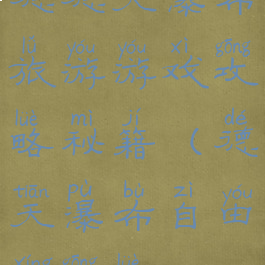 lǚ yóu yóu xì gōng
旅游游戏攻
lüè mì jí dé
略秘籍（德
tiān pù bù zì yóu
天瀑布自由